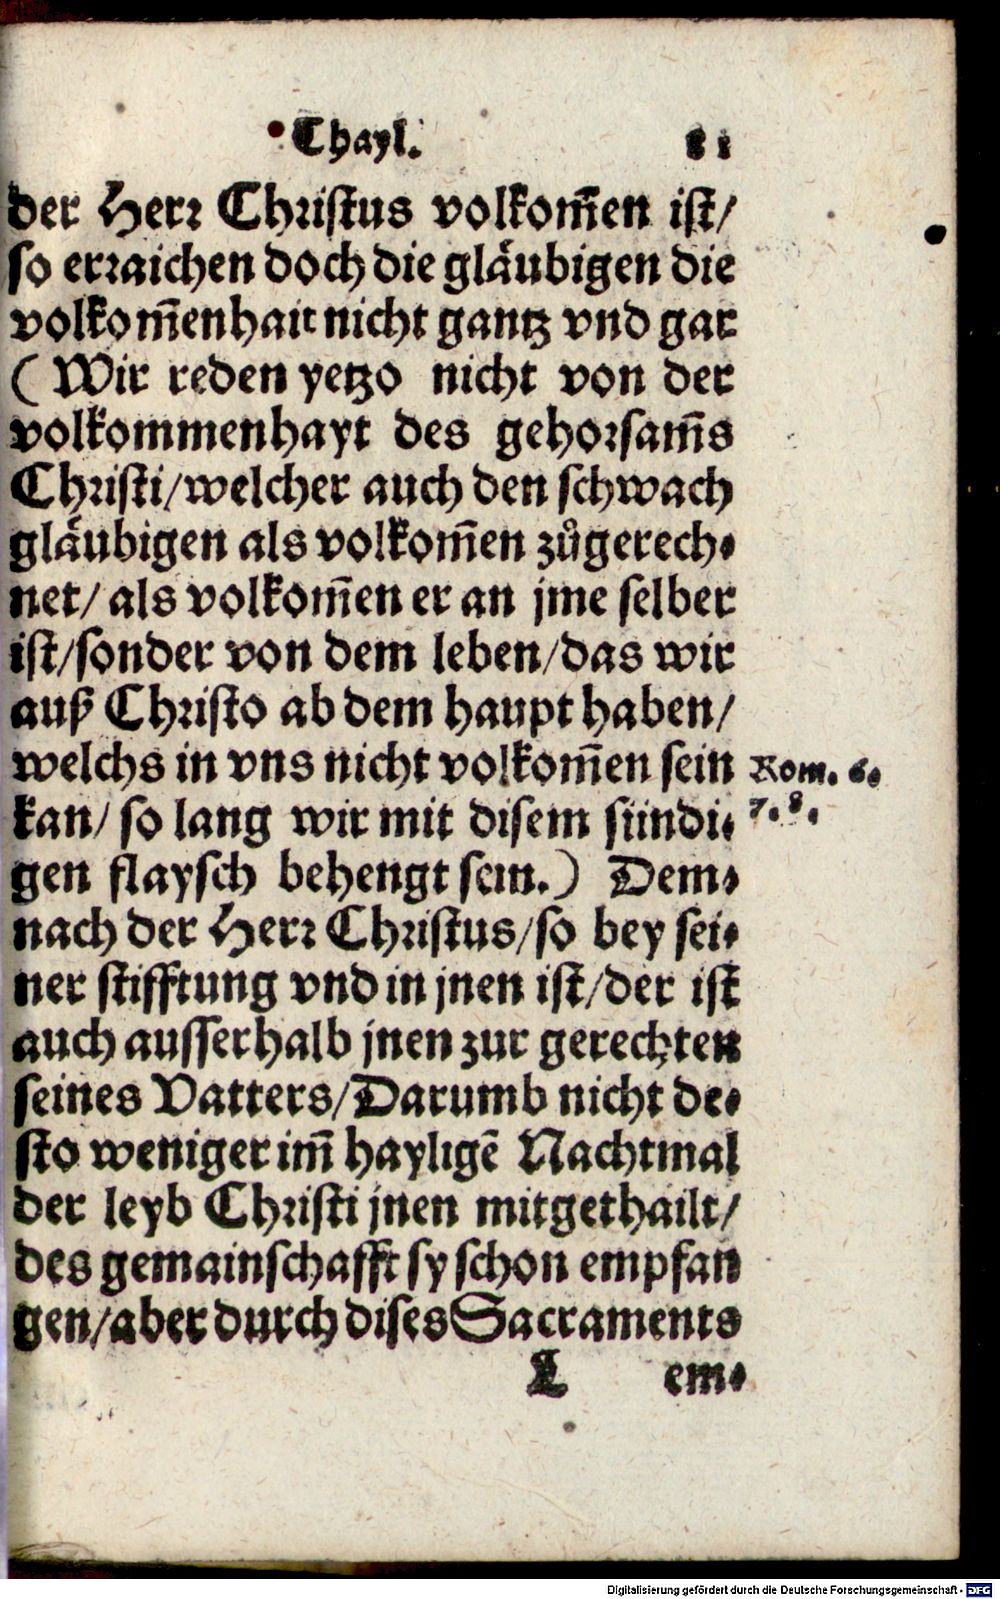 Thayl. 81
der Herr Christus volkom̃en ist/
so erraichen doch die gläubigen die
volkom̃enhait nicht gantz vnd gar
(Wir reden yetzo nicht von der
volkommenhayt des gehorsam̃s
Christi/welcher auch den schwach
gläubigen als volkom̃en zůgerech-
net/ als volkom̃en er an jme selber
ist/sonder von dem leben/das wir
auß Christo ab dem haupt haben/
welchs in vns nicht volkom̃en sein
Rom. 6.
kan/ so lang wir mit disem sündi-
7. 8.
gen flaysch behengt sein.) Dem-
nach der Herr Christus/so bey sei-
ner stifftung vnd in jnen ist/der ist
auch ausserhalb jnen zur gerechten
seines Vatters/Darumb nicht de-
sto weniger im̃ hayligẽ Nachtmal
der leyb Christi jnen mitgethailt/
des gemainschafft sy schon empfan
gen/aber durch dises Sacraments
L em-
Digitalisierung gefördert durch die Deutsche Forschungsgemeinschaft - DFG